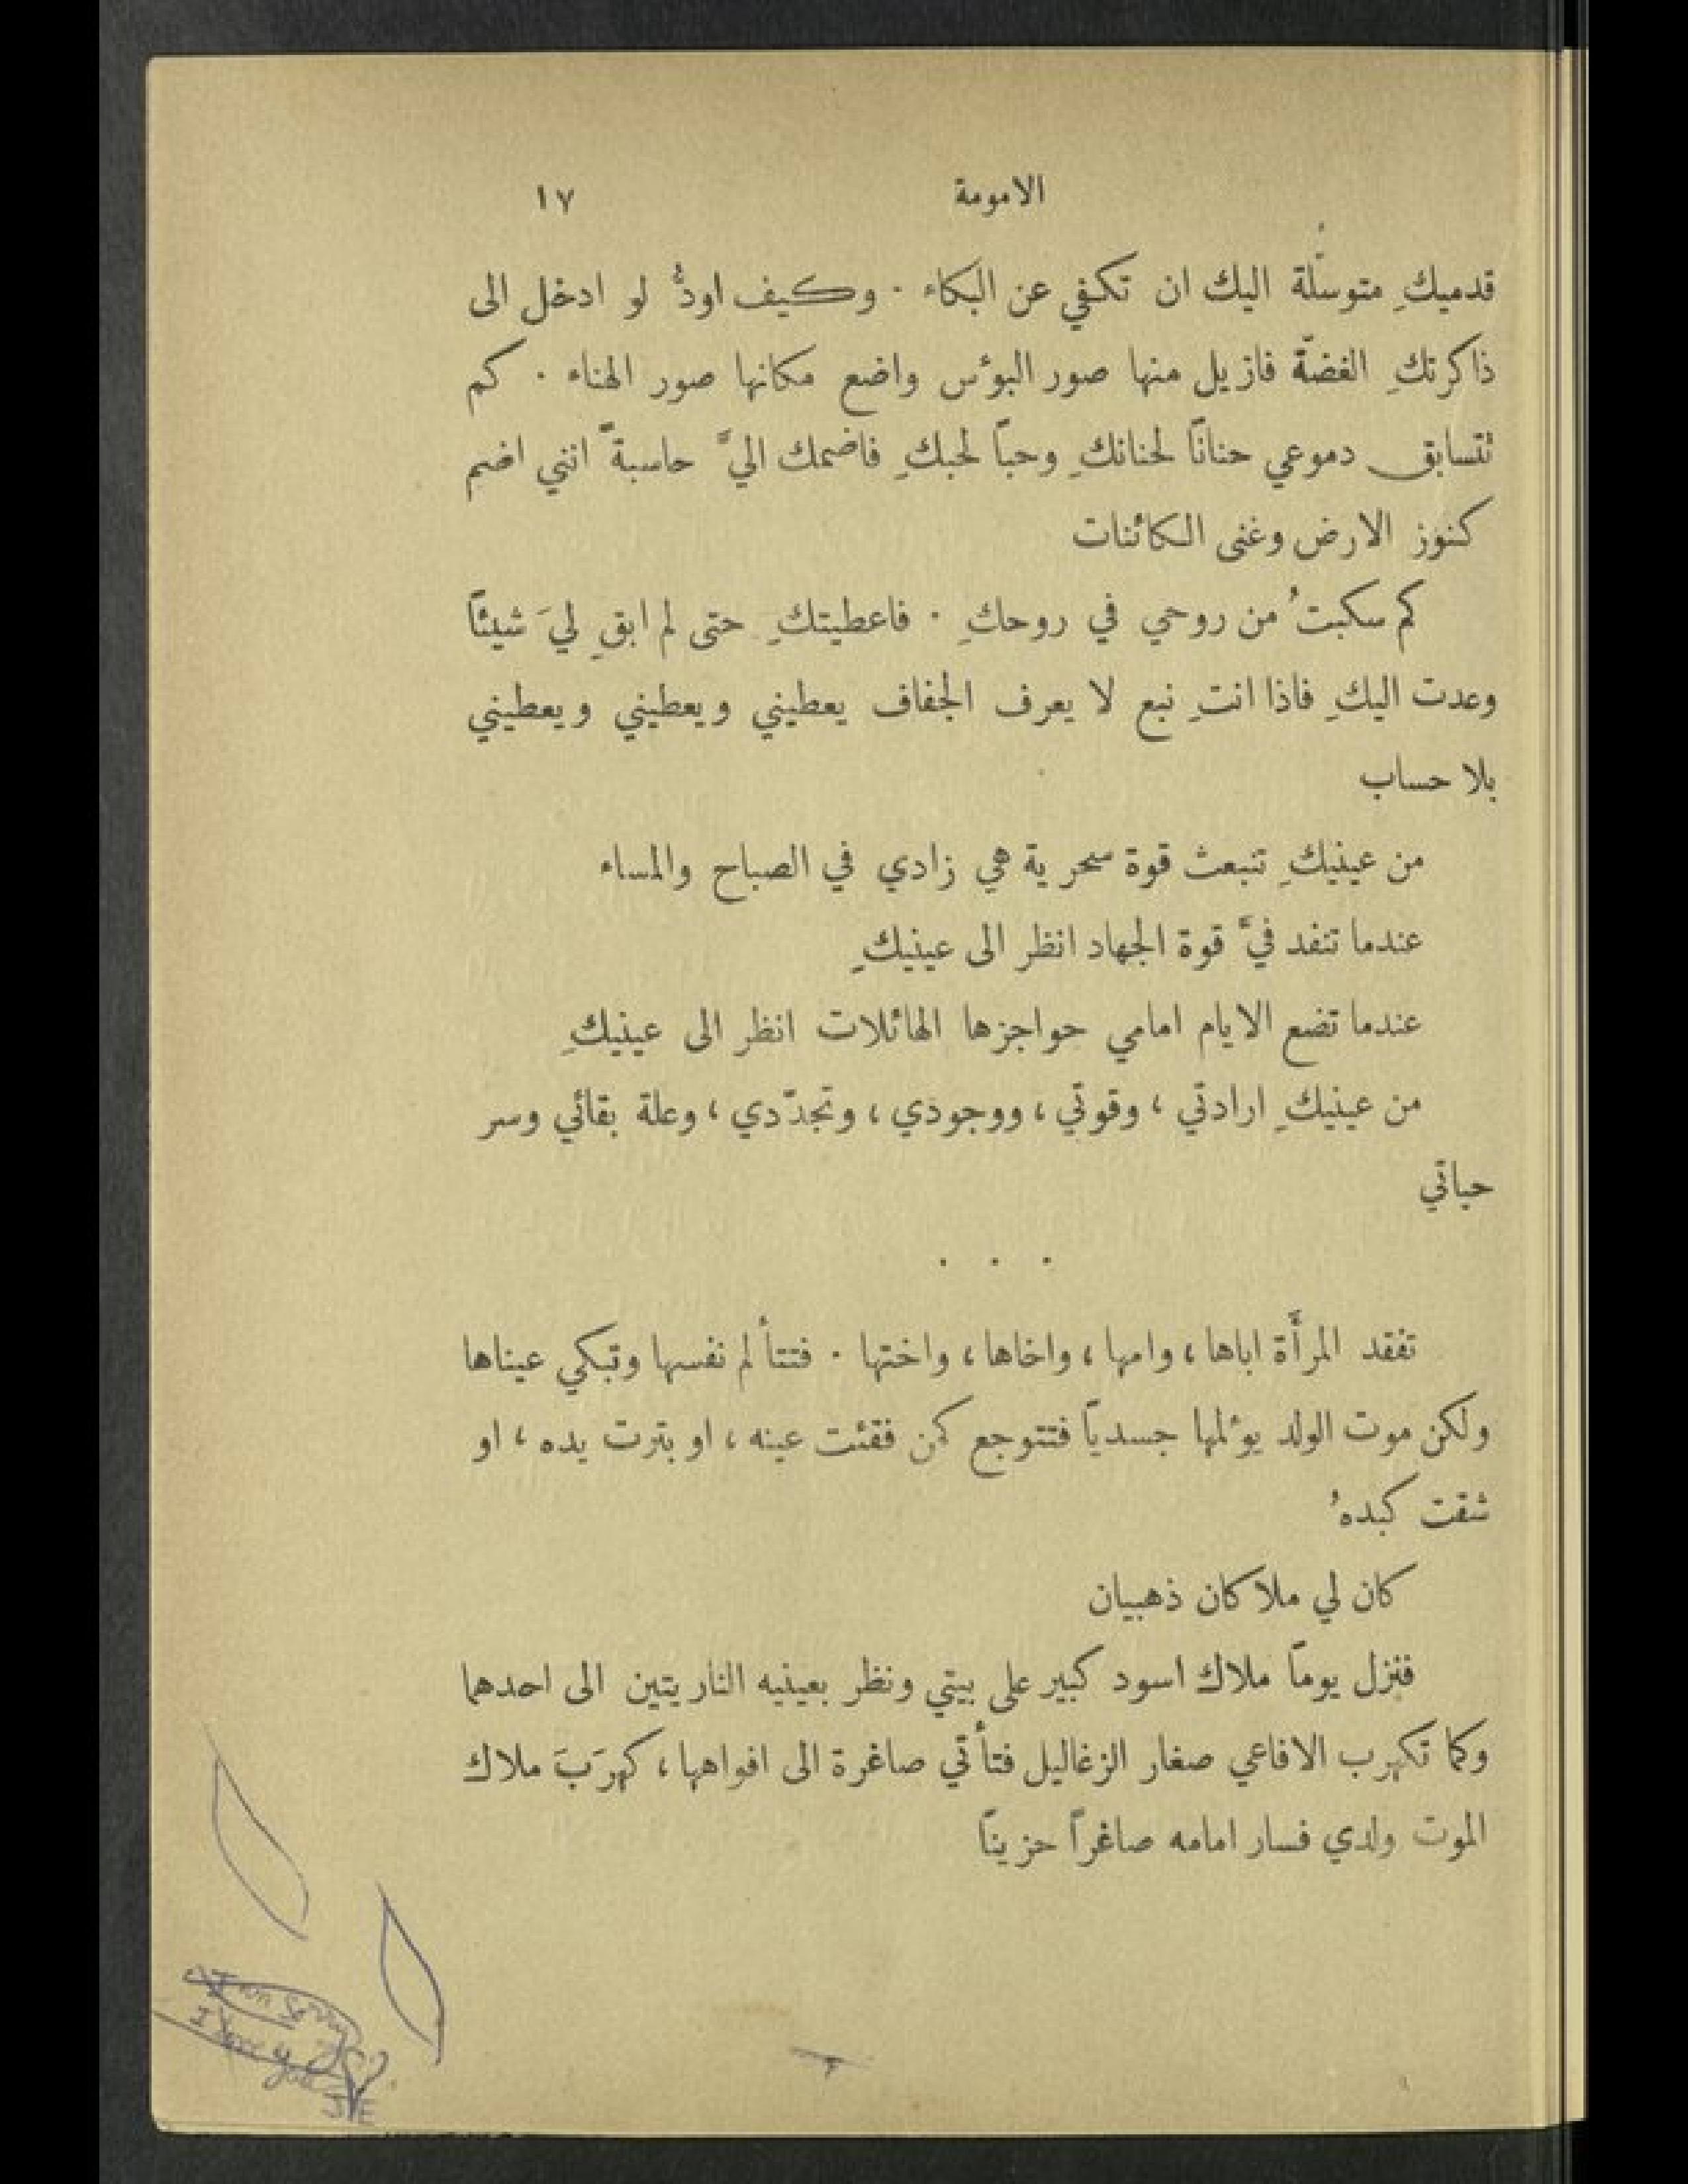 الامومة ١٧
قدميكِ متوسّلة اليك ان تكفي عن البكاء . وكيف اودُّ لو ادخل الى
ذاكرتكِ الغضّة فازيل منها صور البوٴس واضع مكانها صور الهناء . كم
تتسابق دموعي حنانًا لحنانكِ وحبًا لحبكِ فاضمك اليَّ حاسبةً انني اضم
كنوز الارض وغنى الكائنات
كم سكبتُ من روحي في روحكِ . فاعطيتكِ حتى لم ابقِ ليَ شيئًا
وعدت اليكِ فاذا انتِ نبع لا يعرف الجفاف يعطيني ويعطيني ويعطيني
بلا حساب
من عينيكِ تنبعث قوة سحرية هي زادي في الصباح والمساء
عندما تنفد فيَّ قوة الجهاد انظر الى عينيكِ
عندما تضع الايام امامي حواجزها الهائلات انظر الى عينيكِ
من عينيكِ ارادتي ، وقوتي ، ووجودي ، وتجدّدي ، وعلة بقائي وسر
حياتي
. . .
تفقد المرأَة اباها ، وامها ، واخاها ، واختها . فتتأَلم نفسها وتبكي عيناها
ولكن موت الولد يوٴلمها جسديًا فتتوجع كمن فقئت عينه ، او بترت يده ، او
شقت كبدهُ
كان لي ملاكان ذهبيان
فنزل يومًا ملاك اسود كبير على بيتي ونظر بعينيه الناريتين الى احدهما
وكما تكهرب الافاعي صغار الزغاليل فتأتي صاغرة الى افواهها ، كهرَبَ ملاك
الموت ولدي فسار امامه صاغرًا حزينًا
I love you